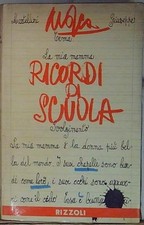 Nicolini Mosca Giuseppe
Tema
La mia mamma
RICORDI
DI
SCUOLA
svolgimento
La mia mamma è la donna più bel-
la del mondo. I suoi capelli sono bion-
di come l'oro, i suoi occhi sono azzur-
ri come il cielo
RIZZOLI